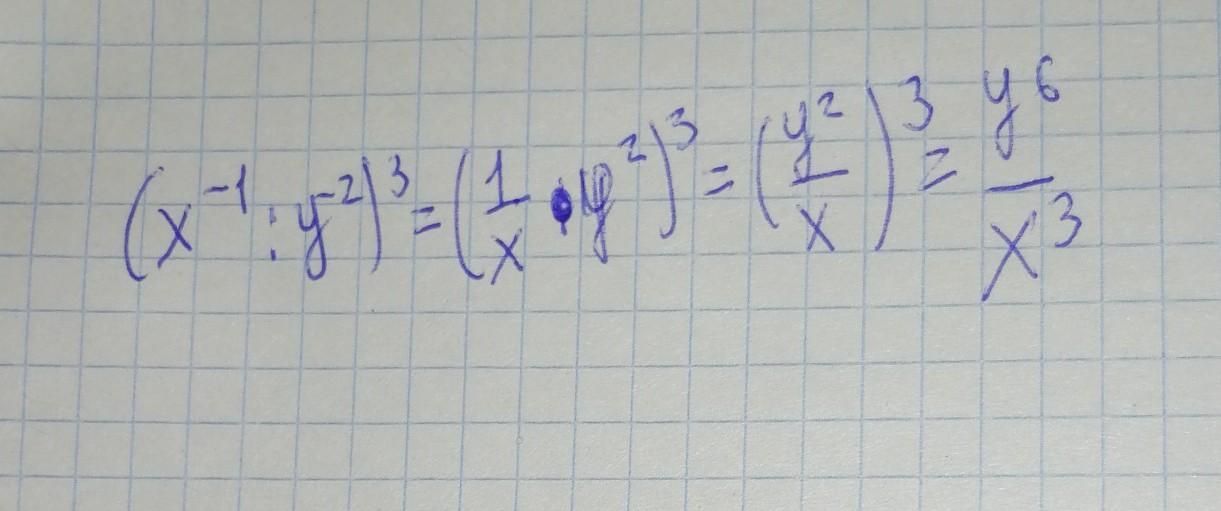 (x⁻¹ : y⁻²)³ = (1/x · y²)³ = (y²/x)³ = y⁶/x³